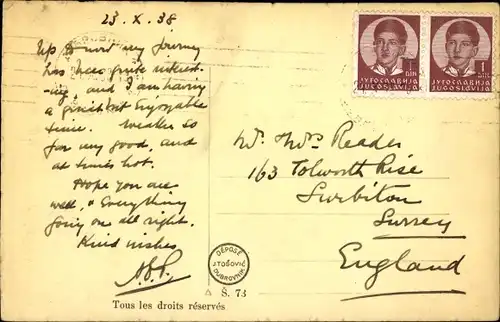 23.X.38
Up to now my journey
has been quite interest-
-ing, and I am having
a quiet but Enjoyable
time. Weather so
far very good, and
at times hot.
Hope you are
well, & Everything
going on all right.
Kind wishes
1 DIN
ЈУГОСЛАВИЈА
JUGOSLAVIJA
1 DIN
ЈУГОСЛАВИЈА
JUGOSLAVIJA
Mr. Mrs Reader
163 Tolworth Rise
Surbiton
Surrey
England
DÉPOSÉ
STOŠOVIĆ
DUBROVNIK
Š. 73
Tous les droits réservés